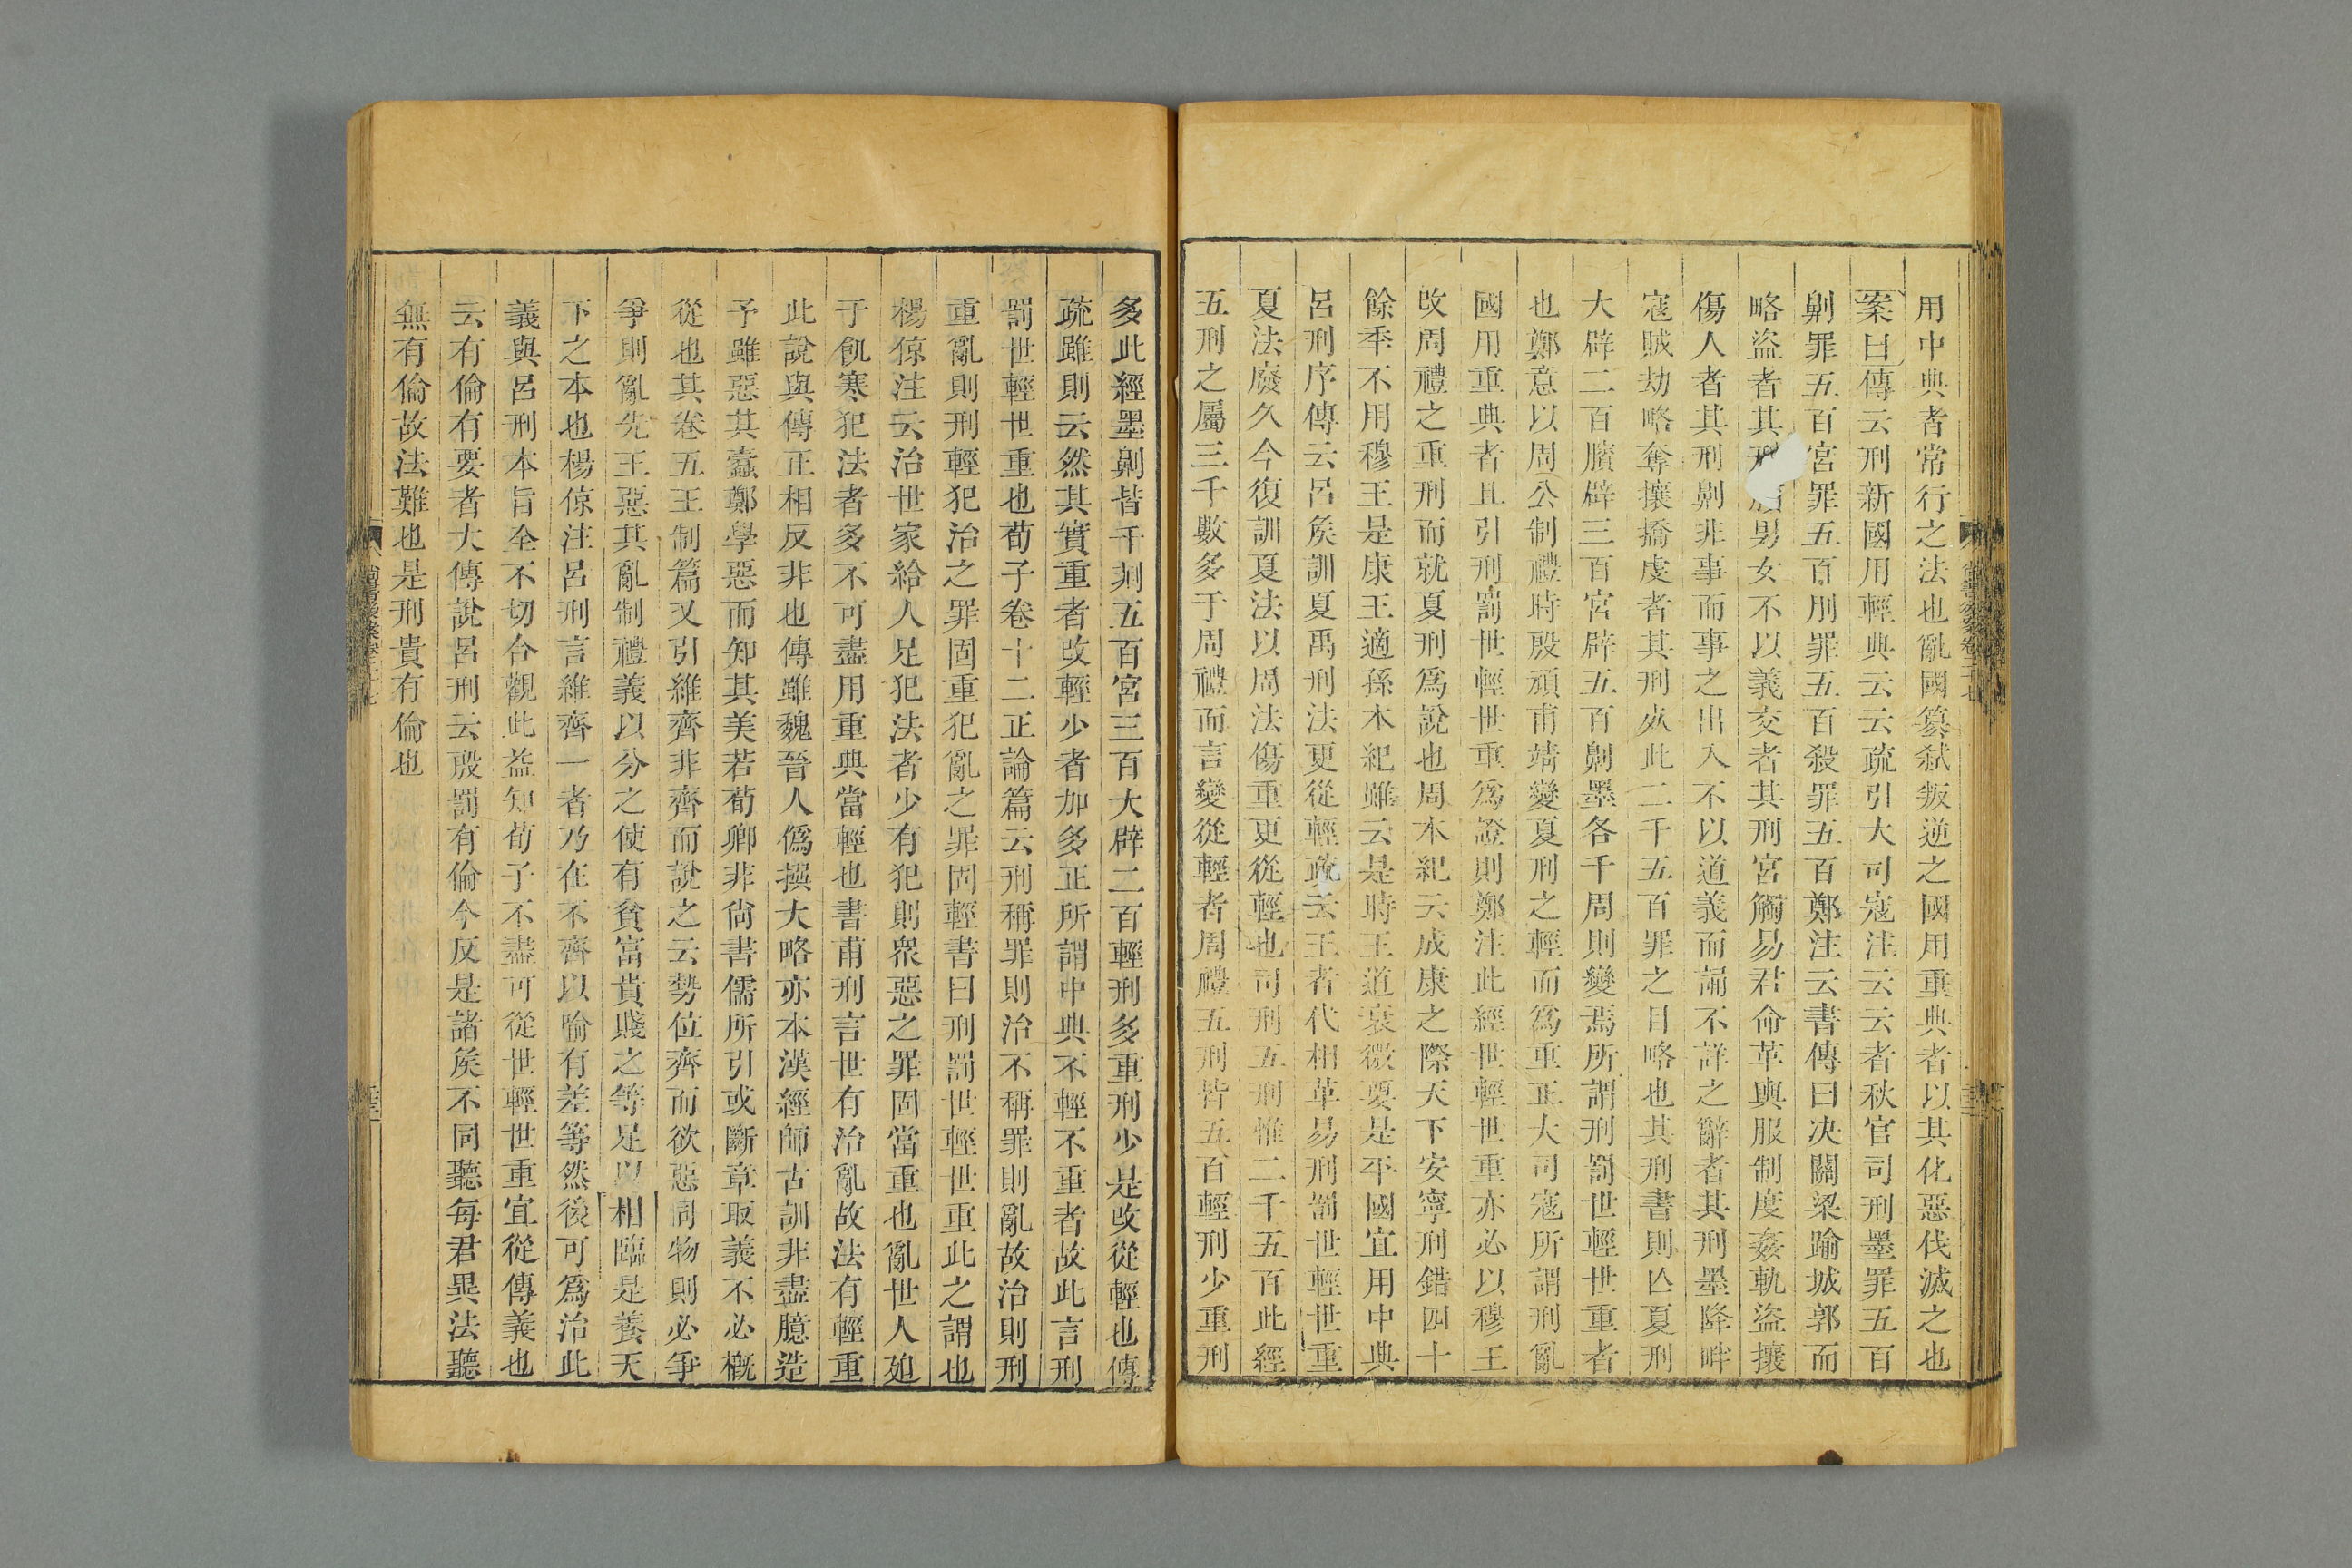 用中典者常行之法也亂國篡弑叛逆之國用重典者以其化惡伐滅之也
案曰傳云刑新國用輕典云云疏引大司寇注云云者秋官司刑墨罪五百
劓罪五百宮罪五百刖罪五百殺罪五百鄭注云書傳曰决關梁踰城郭而
略盜者其刑男女不以義交者其刑宮觸易君命革輿服制度姦軌盜攘
傷人者其刑劓非事而事之出入不以道義而誦不詳之辭者其刑墨降畔
寇賊劫略奪攘撟虔者其刑死此二千五百罪之目略也其刑書則亾夏刑
大辟二百臏辟三百宮辟五百劓墨各千周則變焉所謂刑罰世輕世重者
也鄭意以周公制禮時殷頑甫靖變夏刑之輕而爲重正大司寇所謂刑亂
國用重典者且引刑罰世輕世重爲證則鄭注此經世輕世重亦必以穆王
改周禮之重刑而就夏刑爲說也周本紀云成康之際天下安寧刑錯四十
餘年不用穆王是康王適孫本紀雖云是時王道衰微要是平國宜用中典
呂刑序傳云呂矦訓夏禹刑法更從輕疏云王者代相革易刑罰世輕世重
夏法廢久今復訓夏法以周法傷重更從輕也司刑五刑惟二千五百此經
五刑之屬三千數多于周禮而言變從輕者周禮五刑皆五百輕刑少重刑
多此經墨劓皆千剕五百宮三百大辟二百輕刑多重刑少是改從輕也傳
疏雖則云然其實重者改輕少者加多正所謂中典不輕不重者故此言刑
罰世輕世重也荀子卷十二正論篇云刑稱罪則治不稱罪則亂故治則刑
重亂則刑輕犯治之罪固重犯亂之罪固輕書曰刑罰世輕世重此之謂也
楊倞注云治世家給人足犯法者少有犯則衆惡之罪固當重也亂世人廹
于飢寒犯法者多不可盡用重典當輕也書甫刑言世有治亂故法有輕重
此說與傳正相反非也傳雖魏晉人僞撰大略亦本漢經師古訓非盡臆造
予雖惡其蠹鄭學惡而知其美若荀卿非尙書儒所引或斷章取義不必槪
從也其卷五王制篇又引維齊非齊而說之云勢位齊而欲惡同物則必爭
爭則亂先王惡其亂制禮義以分之使有貧富貴賤之等足以相臨是養天
下之本也楊倞注呂刑言維齊一者乃在不齊以喻有差等然後可爲治此
義與呂刑本旨全不切合觀此益知荀子不盡可從世輕世重宜從傳義也
云有倫有要者大傳說呂刑云殷罰有倫今反是諸矦不同聽每君異法聽
無有倫故法難也是刑貴有倫也